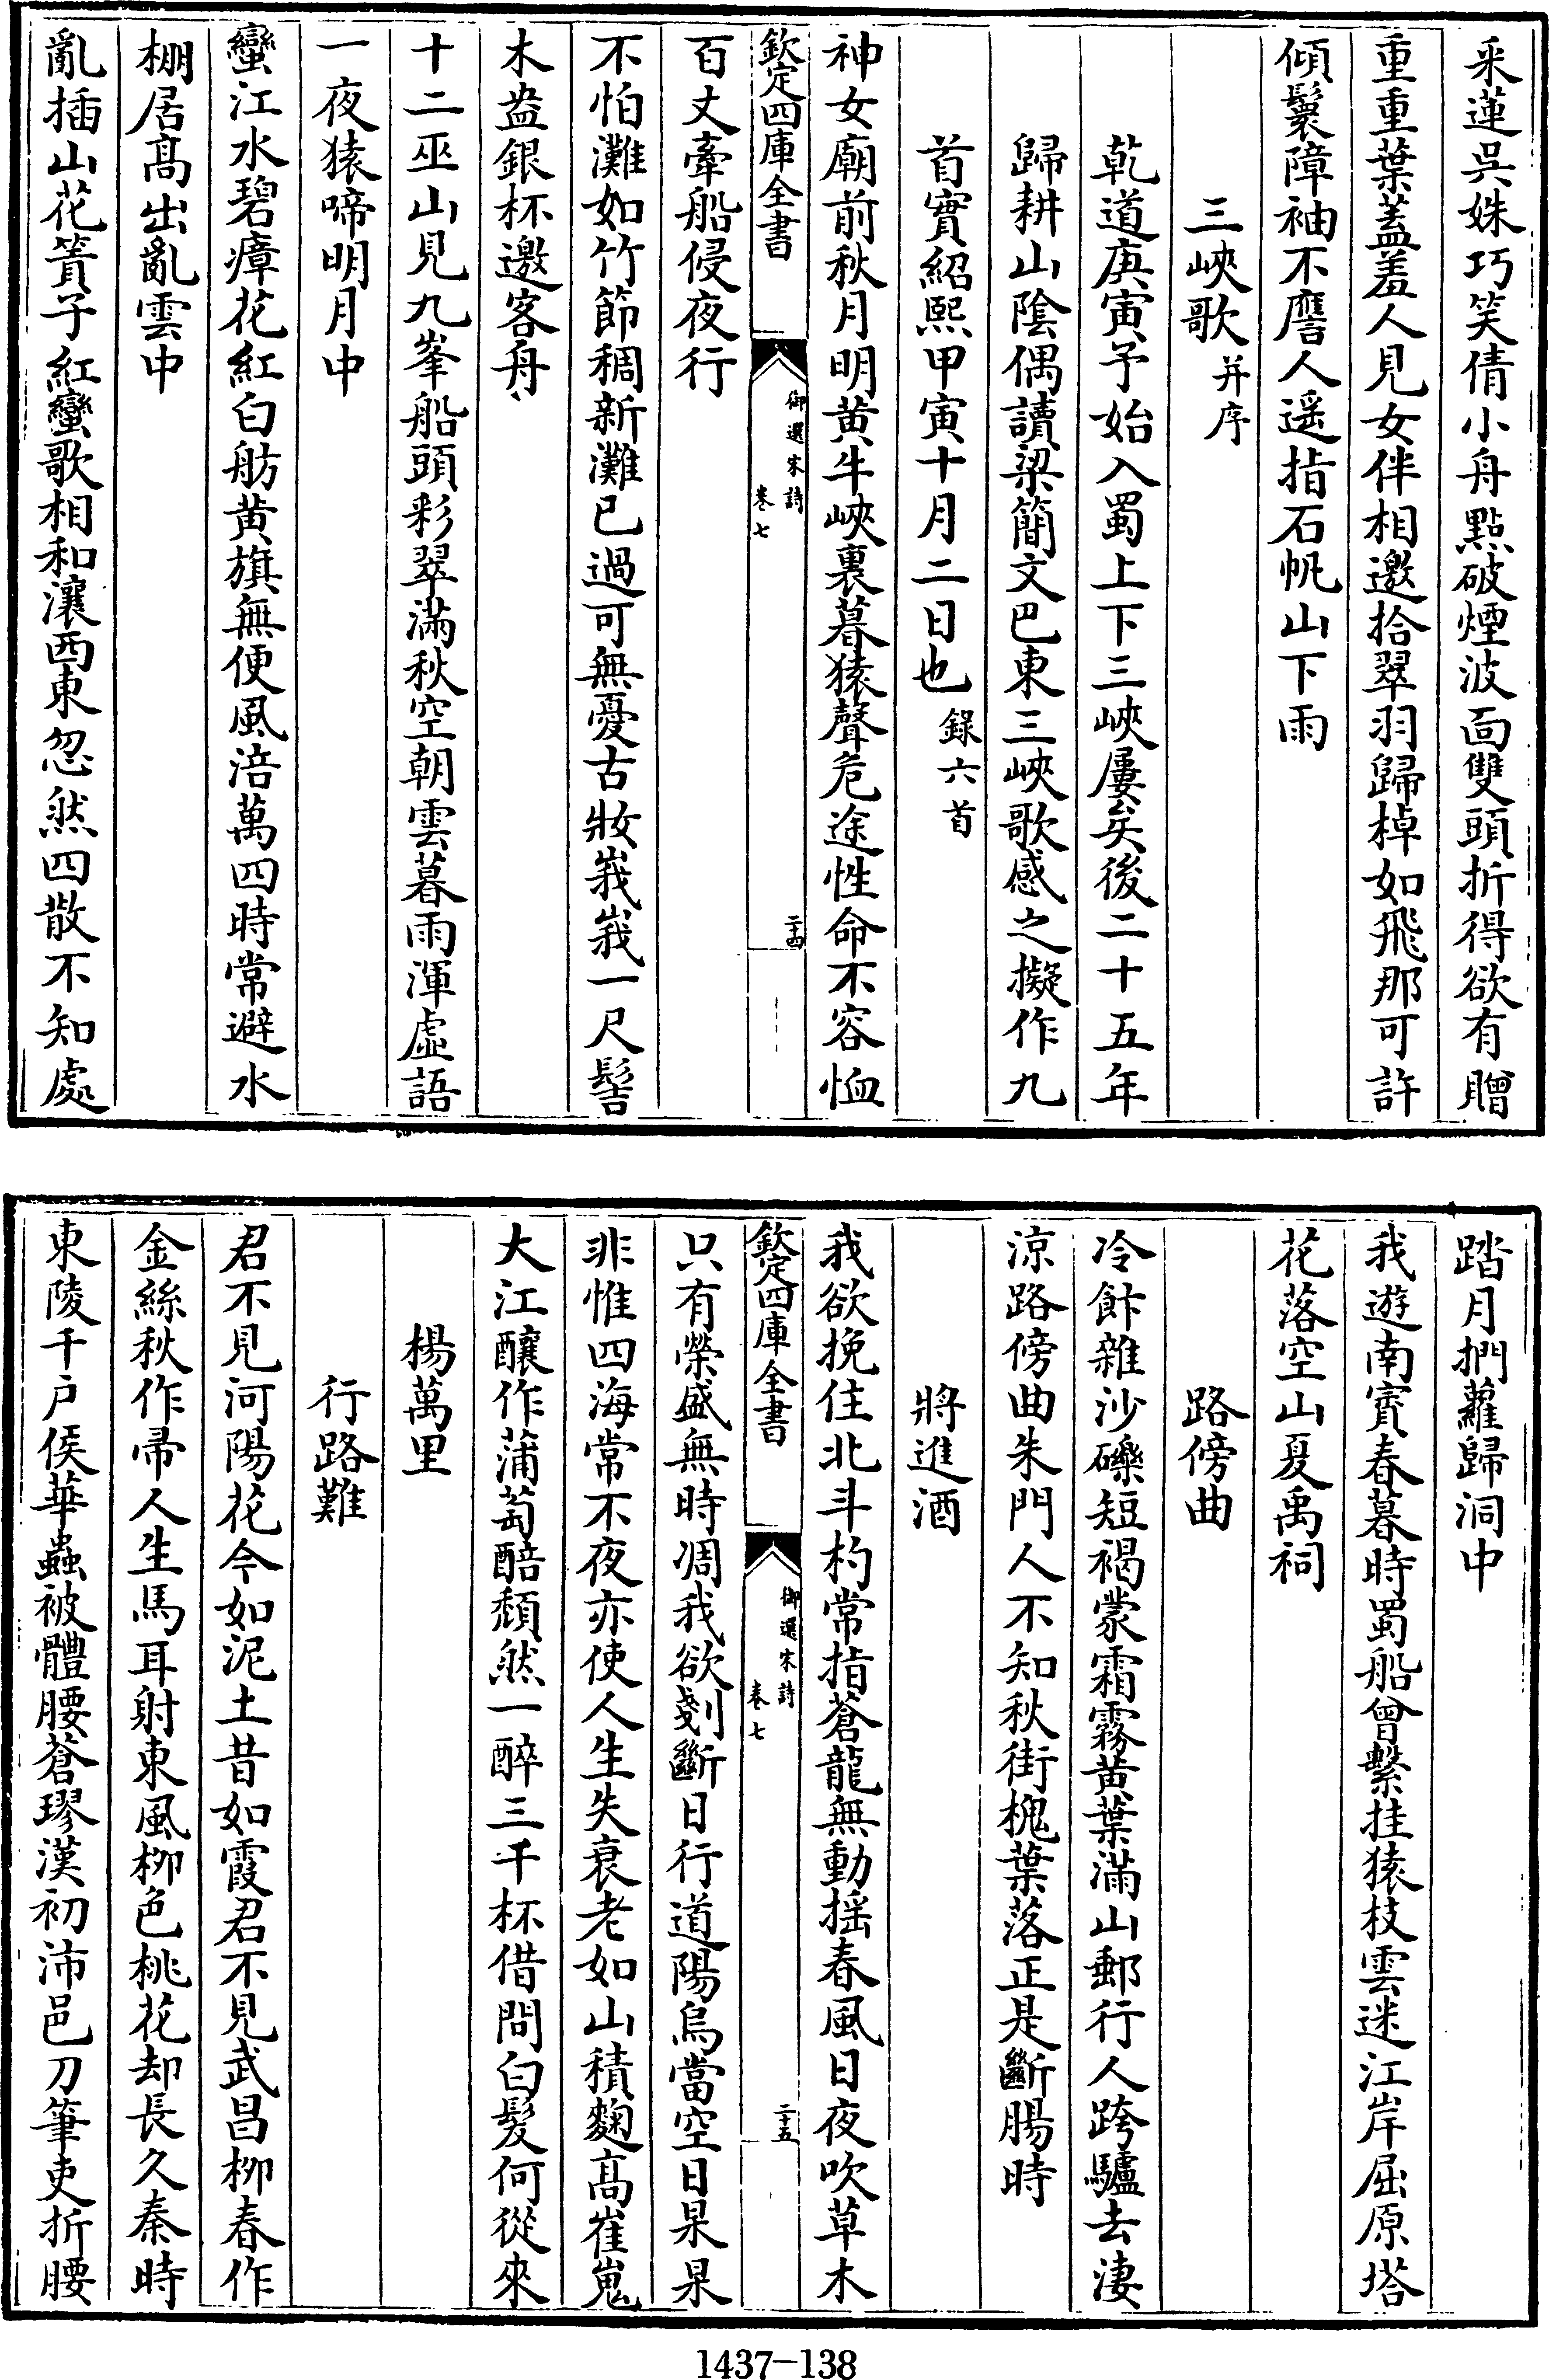 采蓮吳姝巧笑倩小舟㸃破煙波面雙頭折得欲有贈
重重葉蓋羞人見女伴相邀拾翠羽歸棹如飛那可許
傾鬟障袖不譍人遥指石帆山下雨
三峽歌并序
乾道庚寅予始入蜀上下三峽屢矣後二十五年
歸耕山陰偶讀梁簡文巴東三峽歌感之擬作九
首實紹熙甲寅十月二日也錄六首
神女廟前秋月明黄牛峽裏暮猿聲危途性命不容恤
欽定四庫全書
御選宋詩
卷七
二十四
百丈牽船侵夜行
不怕灘如竹節稠新灘已過可無憂古妝峩峩一尺髻
木盎銀杯邀客舟
十二巫山見九峯船頭彩翠滿秋空朝雲暮雨渾虛語
一夜猿啼明月中
蠻江水碧瘴花紅白舫黄旗無便風涪萬四時常避水
棚居髙出亂雲中
亂插山花簪子紅蠻歌相和瀼西東忽然四散不知處
踏月捫蘿歸洞中
我遊南賓春暮時蜀船曾繫挂猿枝雲迷江岸屈原塔
花落空山夏禹祠
路傍曲
冷飰雜沙礫短褐䝉霜霧黄葉滿山郵行人跨驢去淒
涼路傍曲朱門人不知秋街槐葉落正是斷腸時
將進酒
我欲挽住北斗杓常指蒼龍無動揺春風日夜吹草木
欽定四庫全書
御選宋詩
卷七
二十五
只有榮盛無時凋我欲剗斷日行道陽烏當空日杲杲
非惟四海常不夜亦使人生失衰老如山積麴髙崔嵬
大江釀作蒲萄醅頽然一醉三千杯借問白髮何從來
楊萬里
行路難
君不見河陽花今如泥土昔如霞君不見武昌柳春作
金絲秋作帚人生馬耳射東風柳色桃花却長久秦時
東陵千户侯華蟲被體腰蒼璆漢初沛邑刀筆吏折腰
1437-138